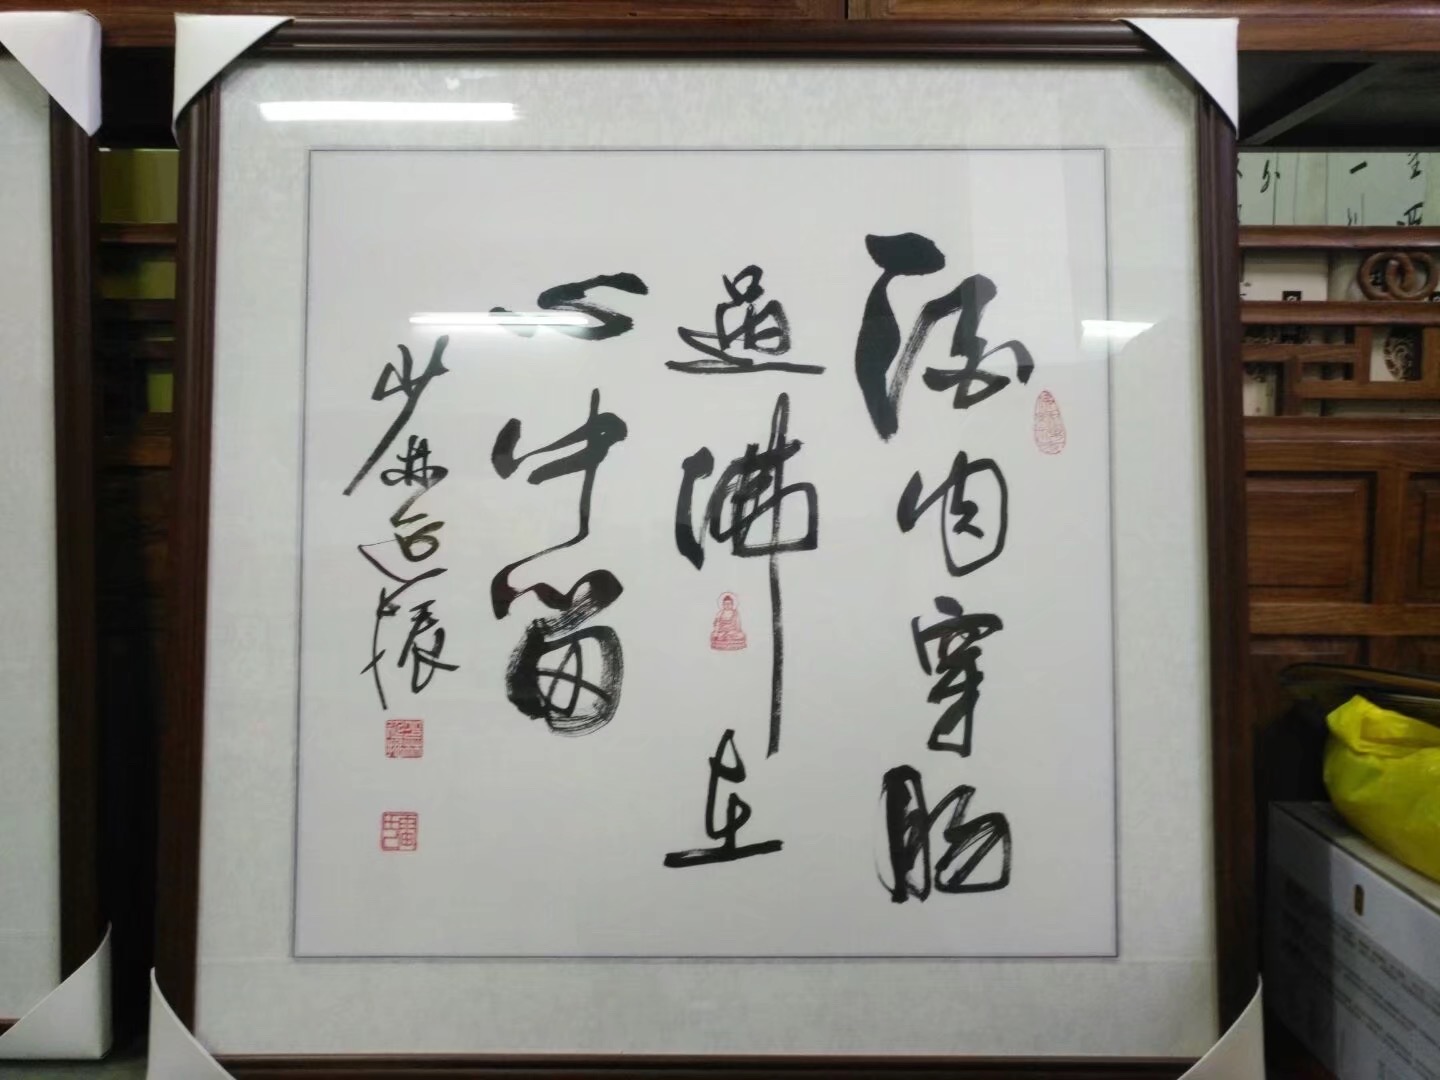 酒肉穿肠
过佛在
心中留
少林延振